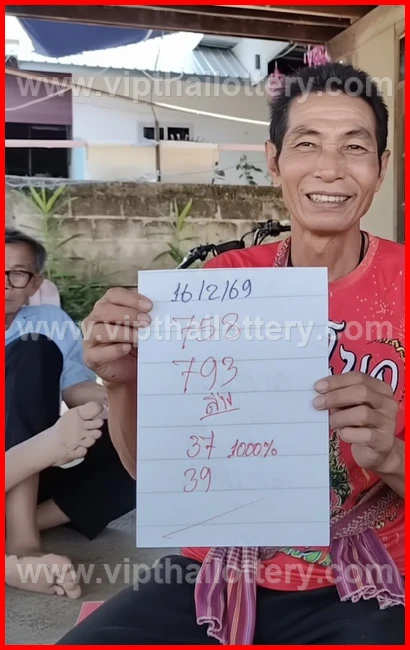 www.vipthailottery.com
16/2/69
758
www.vipthailottery.com
793
ล่าง
37 1000%
39
www.vipthailottery.com